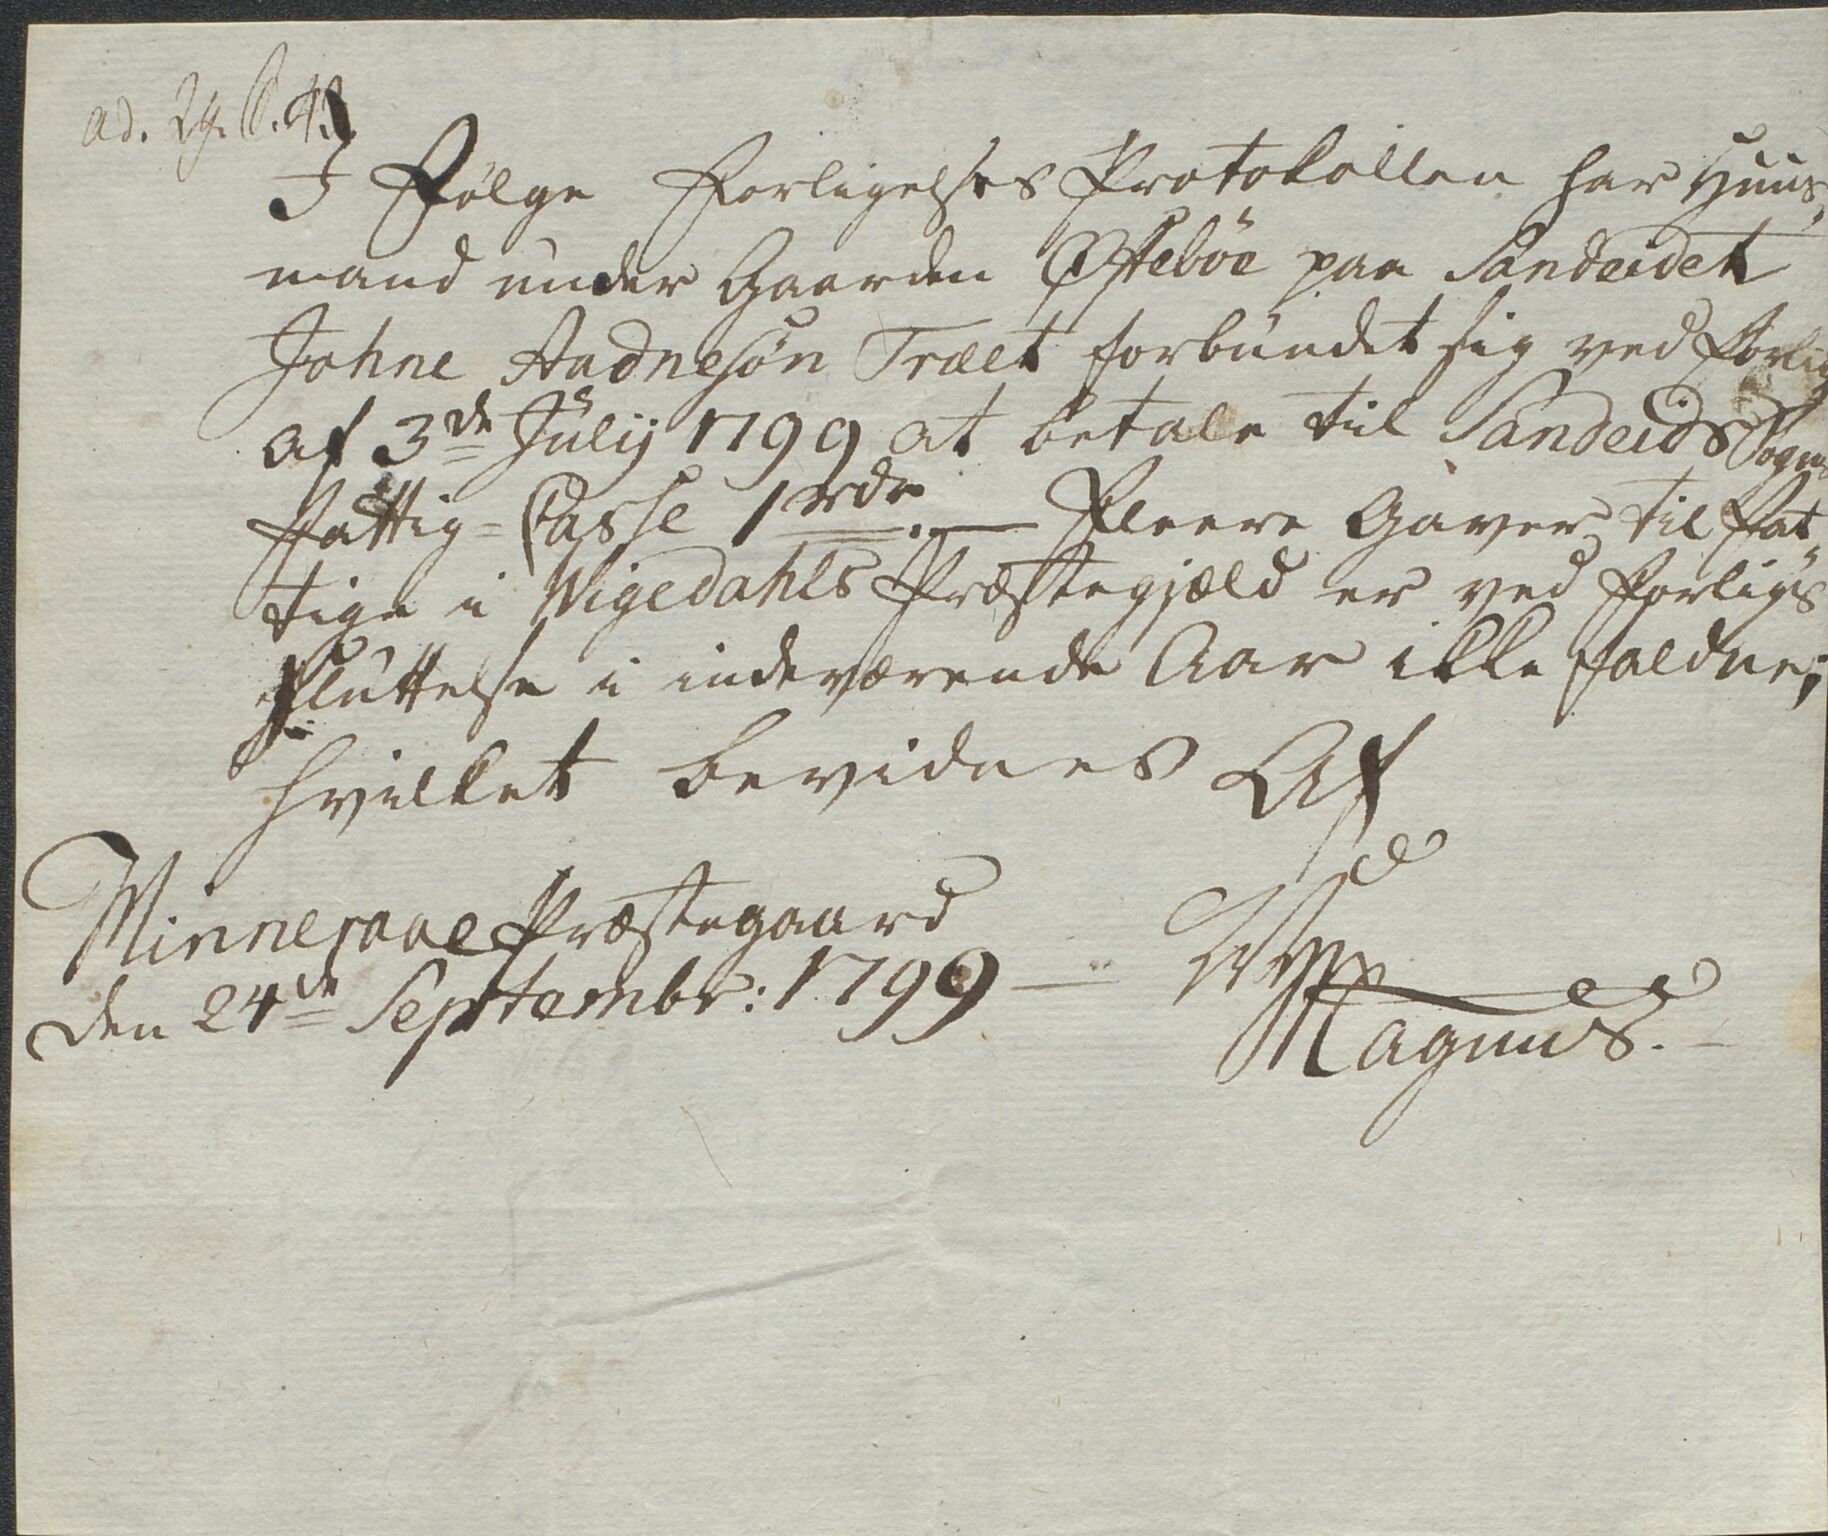 ad.
I Følge Forligelses Protokollen har Huus-
mand under Gaarden Østeböe paa Sandeidet
Johne Aadnesøn Træet forbundet sig ved Forlig
af 3de Julij 1799 at betale til Sandeids Sogns
Fattig=Casse 1 rdr. — Fleere Gaver til Fat-
tige i Wigedahls Præstegjæld er ved Forligs
Sluttelse i indeværende Aar ikke faldne;
hvilket bevidnes Af
Minne Præstegaard
den 24de Septembr: 1799 —
Magnus. —